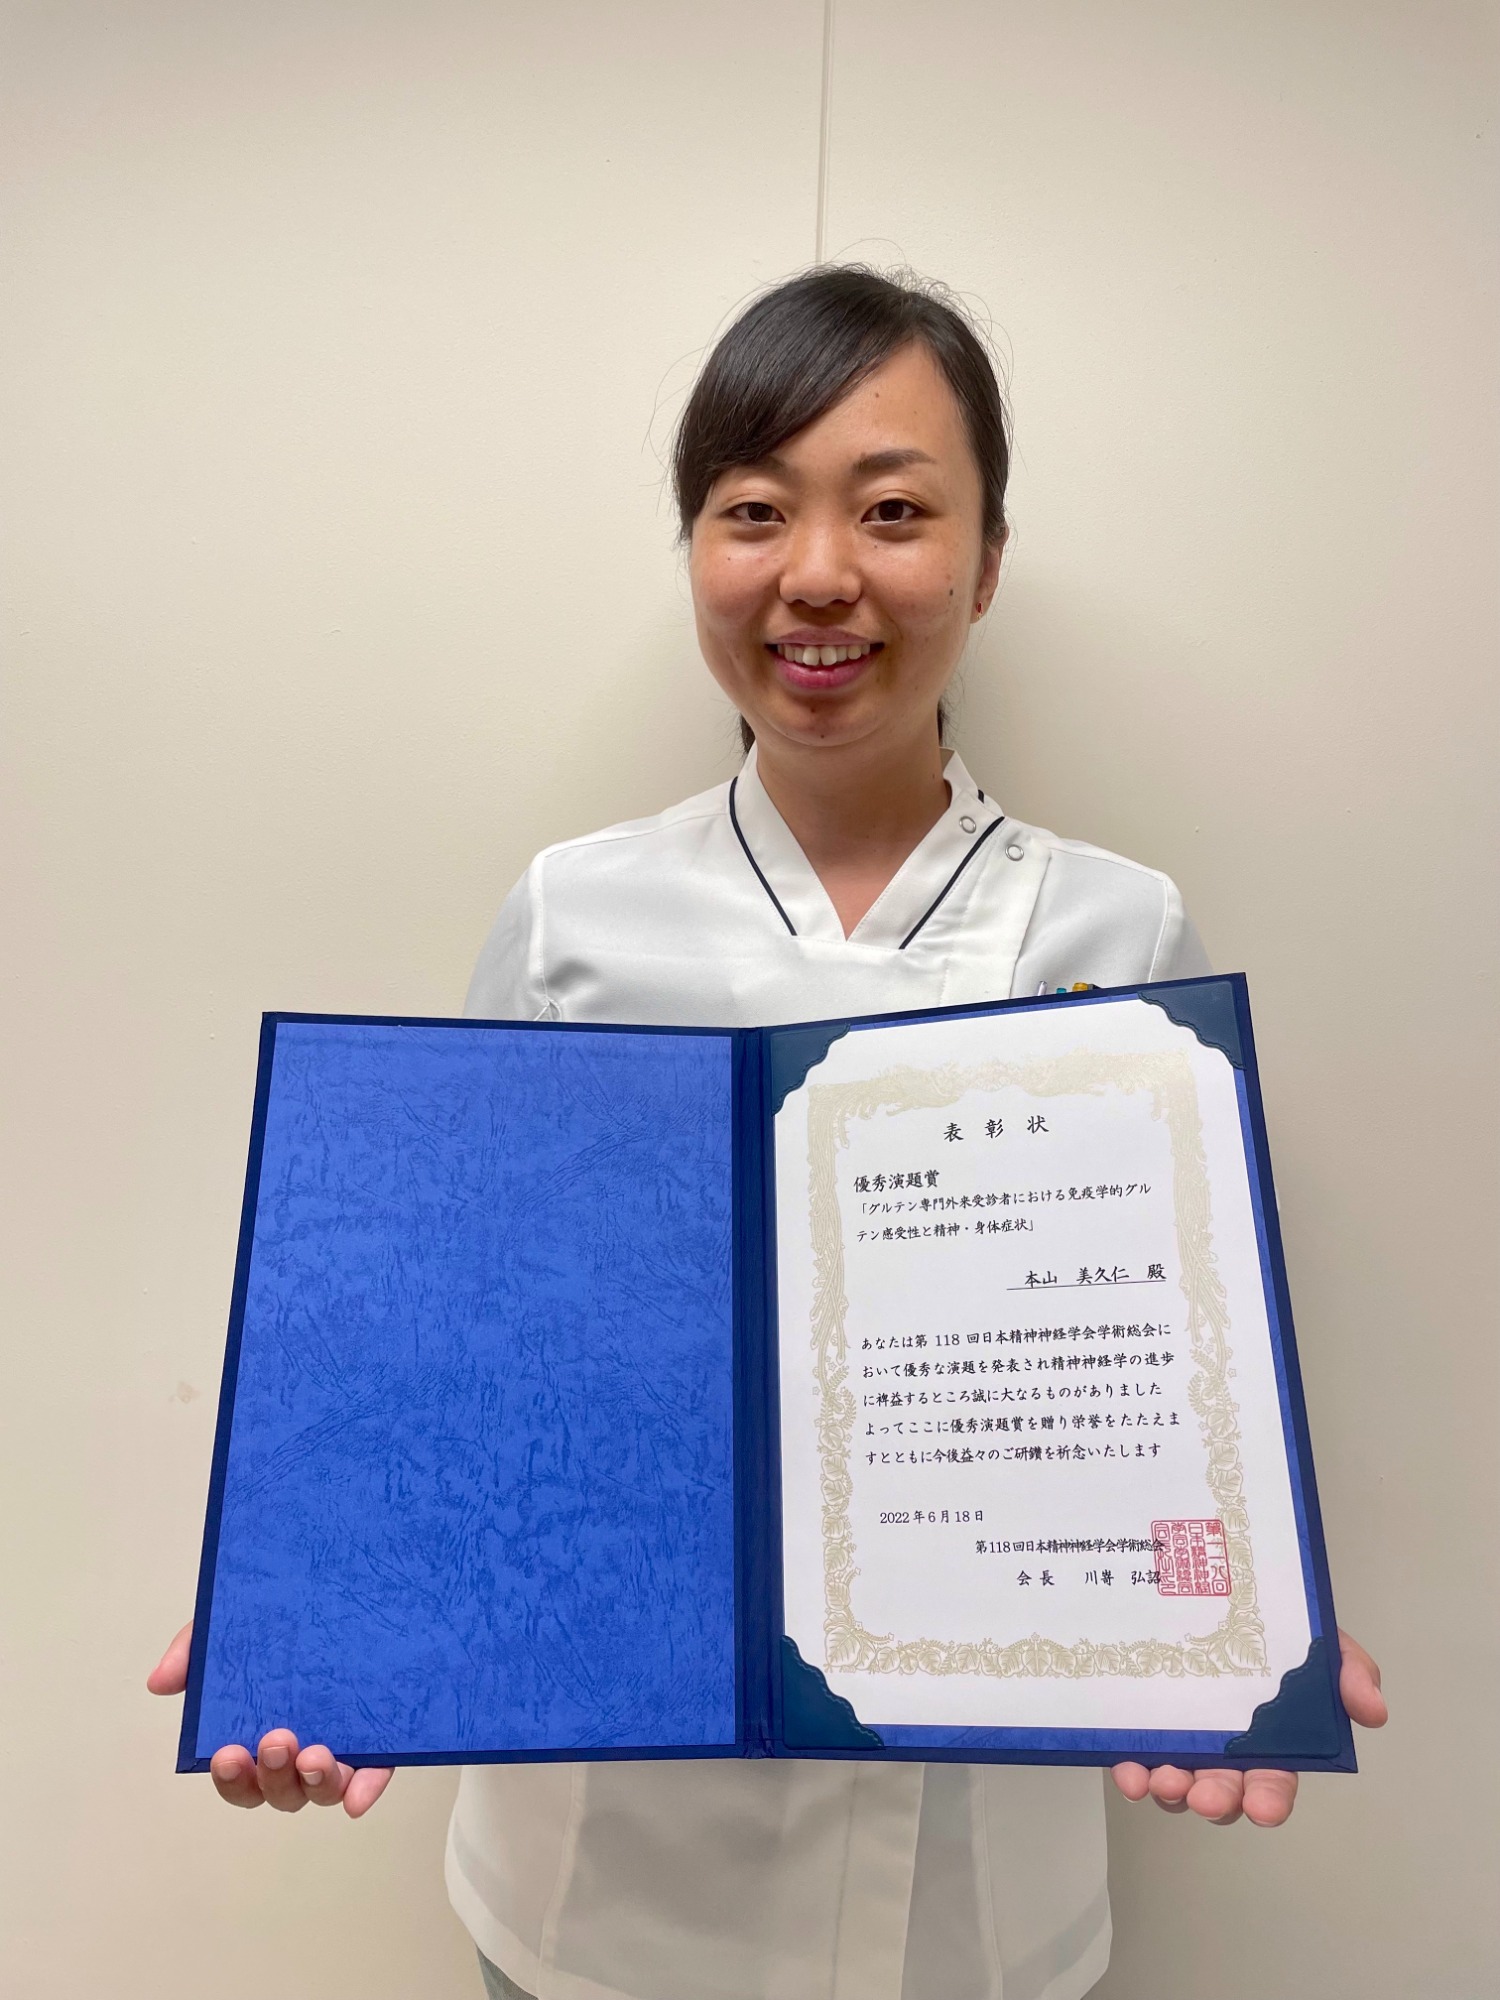 表彰状
優秀演題賞
「グルテン専門外来受診者における免疫学的グル
テン感受性と精神・身体症状」
本山　美久仁　殿
あなたは第 118 回日本精神神経学会学術総会に
おいて優秀な演題を発表され精神神経学の進歩
に裨益するところ誠に大なるものがありました
よってここに優秀演題賞を贈り栄誉をたたえま
すとともに今後益々のご研鑽を祈念いたします
2022年6月18日
第118回日本精神神経学会学術総会
会長　川嵜　弘詔